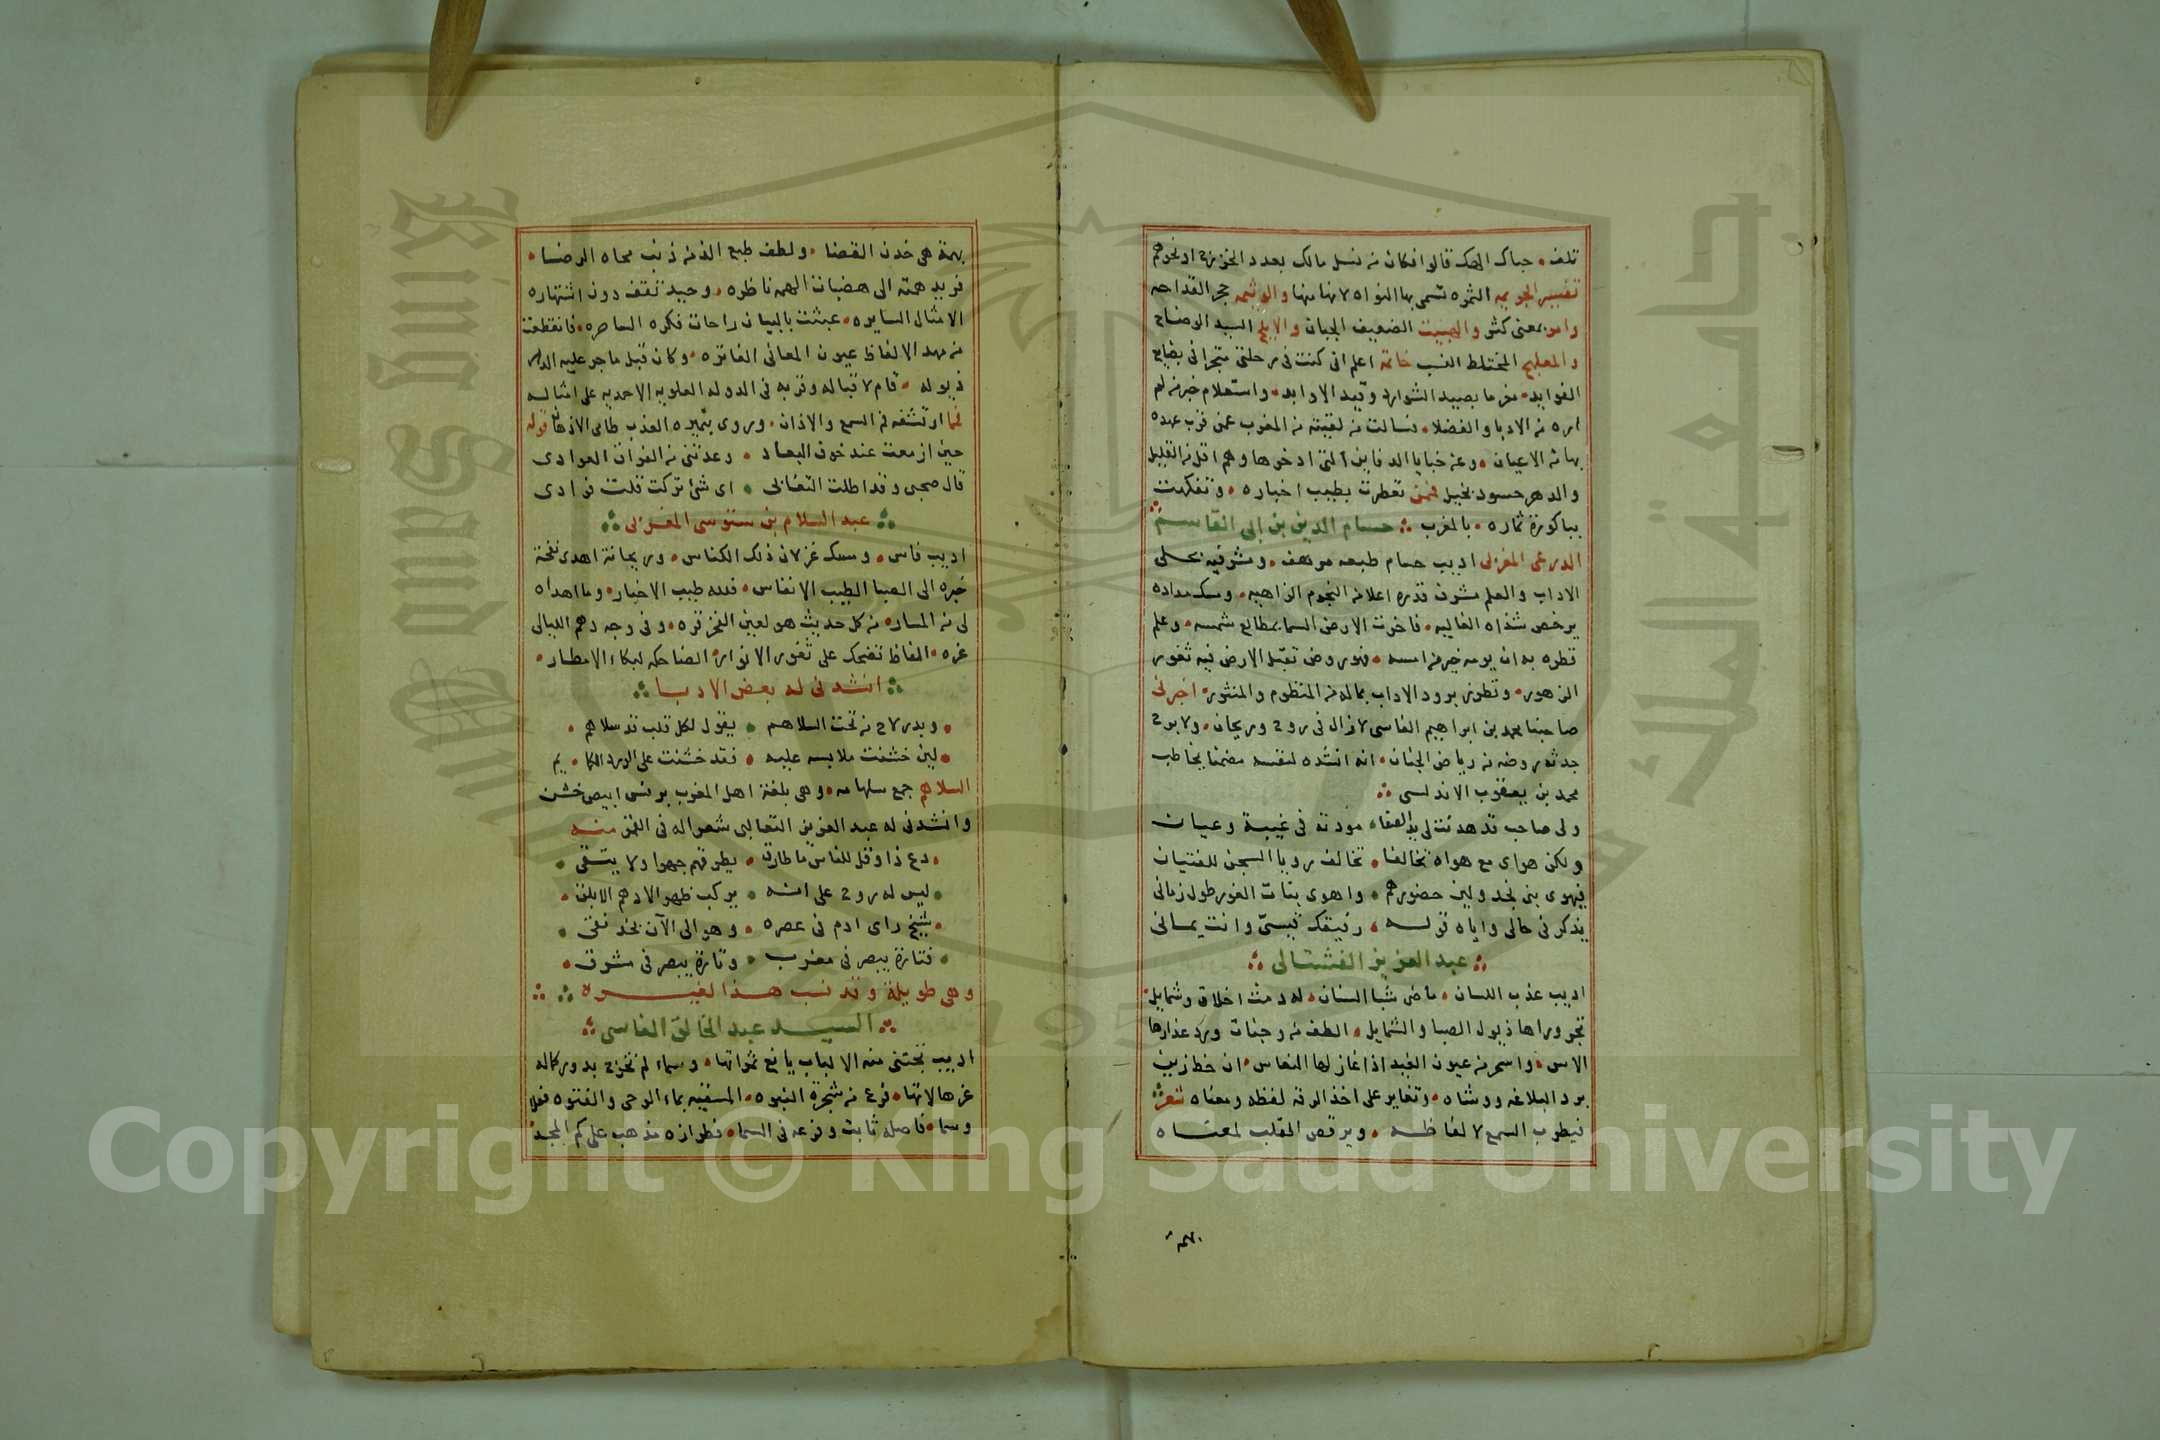 تلف • حباك الهك قالوا فكان من نسل مالك بعدد الخوزج او نحوهم
تفسير الجريمه الثمره تسمى بها النواه لانها منها والوثيمه حجر القداحه
وامر بمعنى كثر والهبيت الضعيف الجبان والابلج السيد الوضاح
والمعلهج المختلط النسب خاتمة اعلم انى كنت فى رحلتى متجرا فى بضايع
الفوايد • مغرما بصيد الشوارد وقيد الاوابد • واستعلام خبر من لم
اره من الادبا والفضلا • فسالت من لقيته من المغرب عمن قرب عهده
بها من الاعيان • وعن خبايا الدفاين التى ادخرها وهم اقل من القليل
والدهر حسود بخيل فممن تعطرت بطيب اخباره • وتفكهت
بباكورة ثماره • بالمغرب حسام الدين بن ابى القاسم
الدرعى المغربى اديب حسام طبعه مرهف • ومشرفيه بحلى
الاداب والعلم مشرف قدره اعلا من النجوم الزاهيه • ومسك مداده
يرخص شذاه الغاليه • فاخرت الارض السما بمطالع شمسه • وعلم
قطره به ان يومه خير من امسه • فهو روض تقبل الارض فيه ثغور
الزهور • وتطرز برود الاداب بماله من المنظوم والمنثور • اخبرنى
صاحبنا محمد بن ابراهيم الفاسى لازال فى روح وريحان • ولا برح
جدثه روضه من رياض الجنان • انه انشده لنفسه مضمنا يخاطب
محمد بن يعقوب الاندلسى
ولى صاحب قد هدئت لى يد الصفاء مودته فى غيبة وعيان
ولكن هواى مع هواه تخالفا • تخالف رويا السجن للفتيان
فيهوى بنى نجد ولين حضورهم • واهوى بنات الغور طول زمانى
يذكرنى حالى واياه قوله • رفيقك قيسىّ وانت يمانى
عبد العزيز الفشتالى
اديب عذب اللسان • ماضى شبا السنان • له دمث اخلاق وشمايل •
تجر وراها ذيول الصبا والشمايل • الطف من وجنات ورد عذارها
الاس • واسحر من عيون الغيد اذا غازلها النعاس • ان خط زين
برد البلاغه ووشاه • وتغاير على اخذ الرقه لفظه ومعناه شعر
فيطرب السمع لالفاظه • ويرقص القلب لمعناه
بهمة هى خدن القضا • ولطف طبع الذ من ذنب محاه الرضا •
فريد همته الى هضبات الهمه ناظره • وحيد تقف دون اشتهاره
الامثال السايره • عبثت بالبيان راحات فكره الساحره • فانقطعت
من مهد الالفاظ عيون المعانى الفاتره • وكان قبل ماجر عليه الدهر
ذيوله • قام لاقباله وقربه فى الدوله العلويه الاحمديه على امثاله
فما ارتشفه فم السمع والاذان • وروى بنميره العذب ظامى الاذهان قوله
حين ازمعت عند خوف البعاد • وعدتنى من الفراق العوادى
قال صحبى وقد اطلت التفاتى • اى شئ تركت قلت فوادى
عبد السلام بن سنوسى المغربى
اديب فاس • ومسك غزلان ذلك الكناس • وريحانة اهدى نفحة
خبره الى الصبا الطيب الانفاس • فلله طيب الاخبار • وما اهداه
لى من المسار • من كل حديث هو لعين الفخر قره • وفى وجه دهم الليالى
غره • الفاظ تضحك على ثغور الانوار الضاحكه لبكاء الامطار •
انشدنى له بعض الادبا
• وبدر لاح من تحت السلاهم • يقول لكل قلب قد سلاهم •
• لين خشنت ملابسه عليه • فقد خشنت على الورد الكمايم •
السلاهم جمع سلهامه • وهى بلغة اهل المغرب برنس ابيض خشن
وانشدنى له عبد العزيز الثعالبى شعرا له فى القمر منه
• دع ذا وقل للناس ما طارق • يطرقهم جهرا ولا يتقى •
• ليس له روح على انه • يركب ظهر الادهم الابلق •
• شيخ راى ادم فى عصره • وهو الى الآن بخد نقى •
• فتارة يبصر فى مغرب • وتارة يبصر فى مشرق •
وهى طويلة وقد نسب هذا لغيره
السيد عبد الخالق الفاسى
اديب تجتنى منه الالباب يانع ثمراتها • وسماء لم تخرج بدور كماله
عن هالاتها • فرع من شجرة النبوه • المسقيه بماء الوحى والفتوه فعلا
وسما • فاصله ثابت وفرعه فى السما • فطرازه مذهب على كم المجد